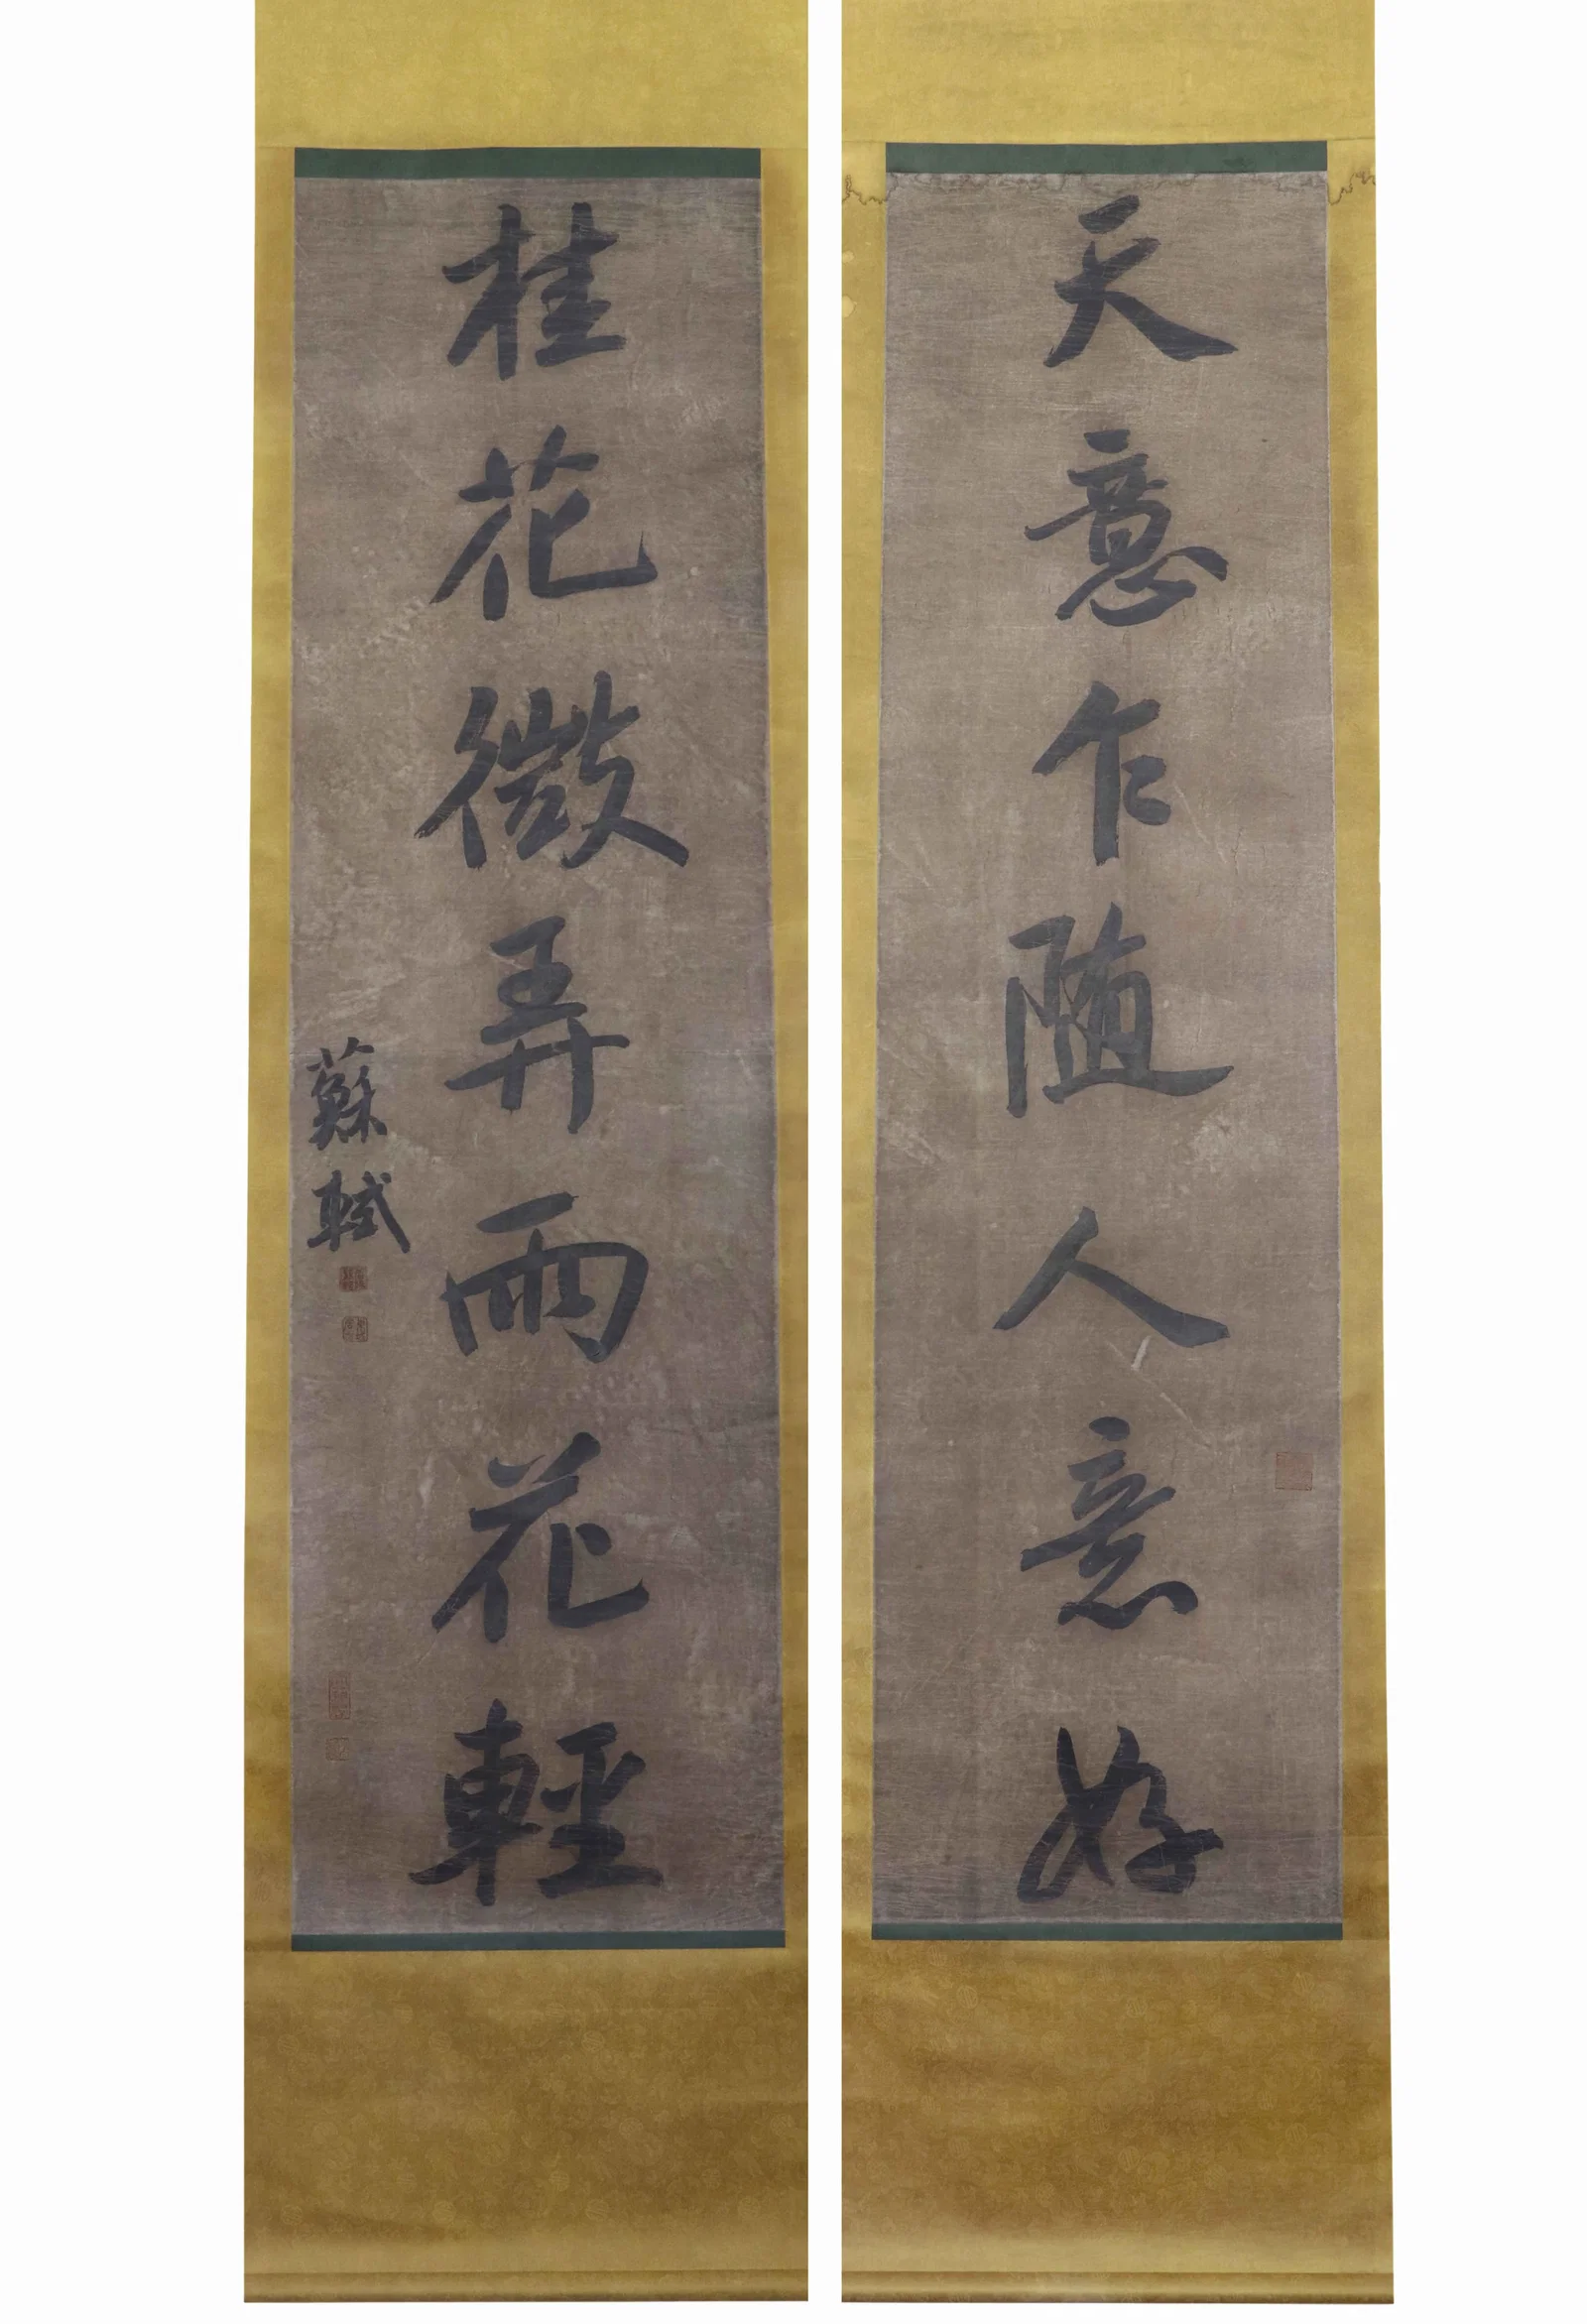 天意乍随人意好
桂花微弄雨花輕
蘇軾